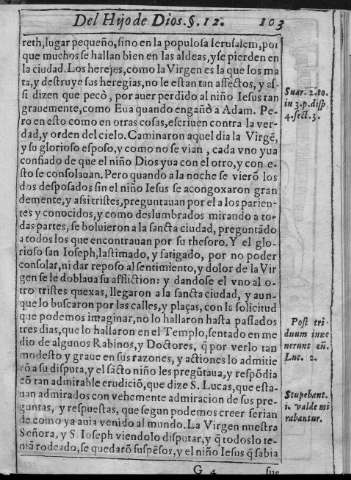 Del Hijo de Dios. §. 12. 103
reth, lugar pequeño, sino en la populosa Ierusalem, por
que muchos se hallan bien en las aldeas, y se pierden en
la ciudad. Los herejes, como la Virgen es la que los ma
ta, y destruye sus heregias, no le estan tan affectos, y as-
si dizen que pecò, por auer perdido al niño Iesus tan
grauemente, como Eua quando engañò a Adam. Pe-
ro en esto como en otras cosas, escriuen contra la ver-
dad, y orden del cielo. Caminaron aquel dia la Virgẽ,
y su glorioso esposo, y como no se vian, cada vno yua
confiado de que el niño Dios yua con el otro, y con e-
sto se consolauan. Pero quando a la noche se vierõ los
dos desposados sin el niño Iesus se acongoxaron gran
demente, y assi tristes, preguntauan por el a los parien-
tes y conocidos, y como deslumbrados mirando a to-
das partes, se boluieron a la sancta ciudad, preguntãdo
a todos los que encontrauan por su thesoro. Y el glo-
rioso san Ioseph, lastimado, y fatigado, por no poder
consolar, ni dar reposo al sentimiento, y dolor de la Vir
gen se le doblaua su affliction: y dandose el vno al o-
tro tristes quexas, llegaron a la sancta ciudad, y aun-
que lo buscaron por las calles, y plaças, con la solicitud
que podemos imaginar, no lo hallaron hasta passados
tres dias, que lo hallaron en el Templo, sentado en me
dio de algunos Rabinos, y Doctores, q̃ por verlo tan
modesto y graue en sus razones, y actiones lo admitie
rõ a su disputa, y el sãcto niño les pregũtaua, y respõdia
cõ tan admirable erudiciõ, que dize S. Lucas, que esta-
uan admirados con vehemente admiracion de sus pre-
guntas, y respuestas, que segun podemos creer serian
de como ya auia venido al mundo. La Virgen nuestra
Señora, y S. Ioseph viendolo disputar, y q̃ todos lo te-
niã rodeado, se quedarõ suspẽsos, y el niño Iesus q̃ sabia
G 4 sue
Suar. 2. to.
in 3. p. disp
4. sect. 3.
Post tri-
duum inue
nerunt eũ.
Luc. 2.
Stupebant.
i. valde mi
rabantur.